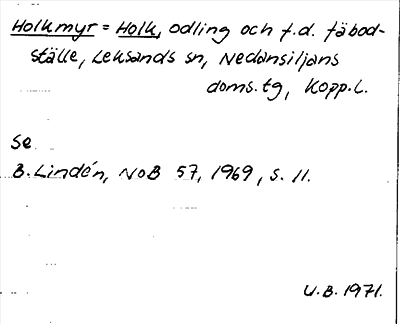 Holkmyr = Holk, odling och f.d. fäbod-
ställe, Leksands sn, Nedansiljans
doms.tg, Kopp.L.
Se
B. Lindén, NoB 57, 1969, s. 11.
U.B. 1971.